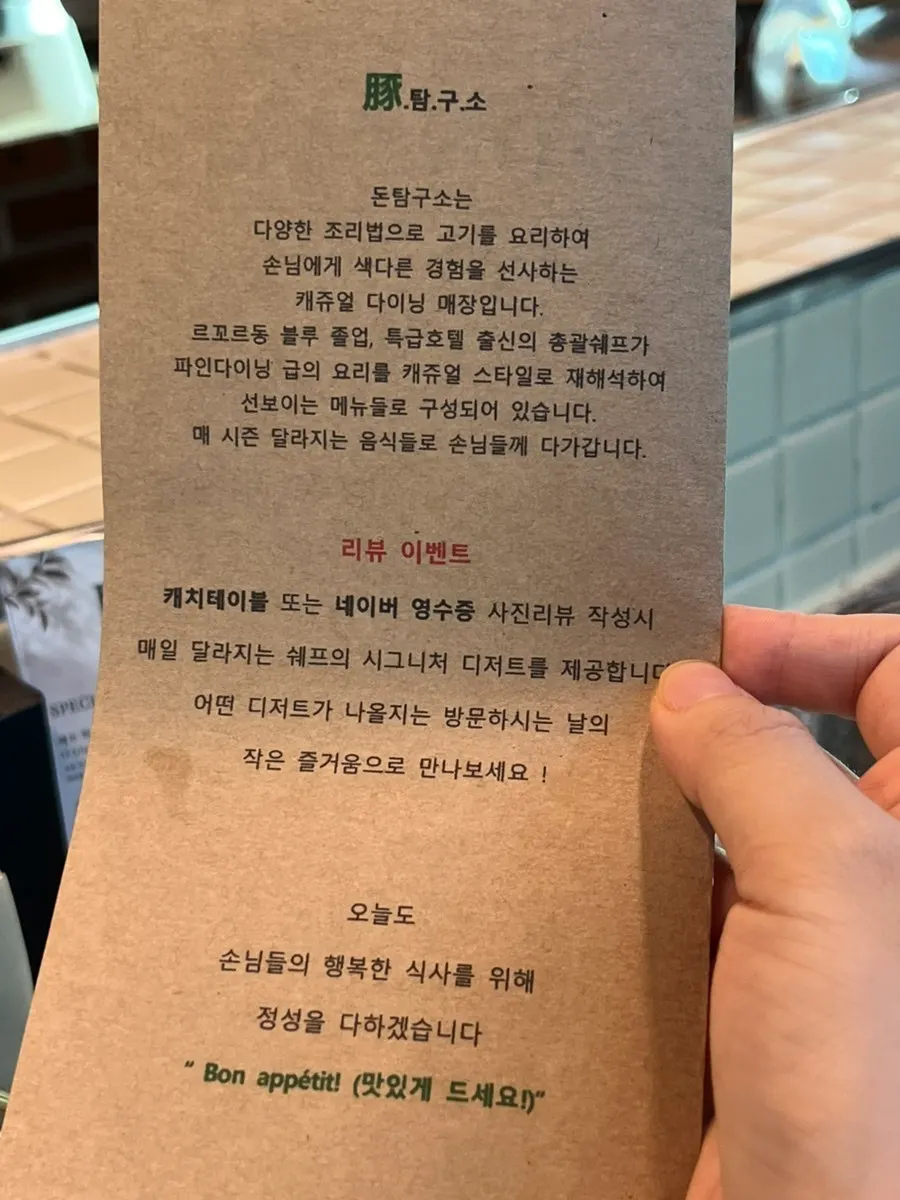 豚.탐.구.소
돈탐구소는
다양한 조리법으로 고기를 요리하여
손님에게 색다른 경험을 선사하는
캐쥬얼 다이닝 매장입니다.
르꼬르동 블루 졸업, 특급호텔 출신의 총괄쉐프가
파인다이닝 급의 요리를 캐쥬얼 스타일로 재해석하여
선보이는 메뉴들로 구성되어 있습니다.
매 시즌 달라지는 음식들로 손님들께 다가갑니다.
리뷰 이벤트
캐치테이블 또는 네이버 영수증 사진리뷰 작성시
매일 달라지는 쉐프의 시그니처 디저트를 제공합니다
어떤 디저트가 나올지는 방문하시는 날의
작은 즐거움으로 만나보세요 !
오늘도
손님들의 행복한 식사를 위해
정성을 다하겠습니다
“ Bon appétit! (맛있게 드세요!)”
SPECI